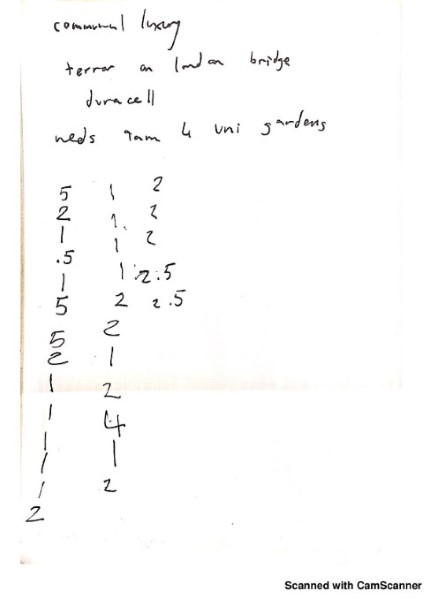 communal luxury
terror on london bridge
duracell
neds 9am 4 uni gardens
5 1 2
2 1. 2
1 1 2
.5 1 2.5
1 2 2.5
5 2
5 1
2 2
1 4
1 1
1 2
1
1
2
Scanned with CamScanner